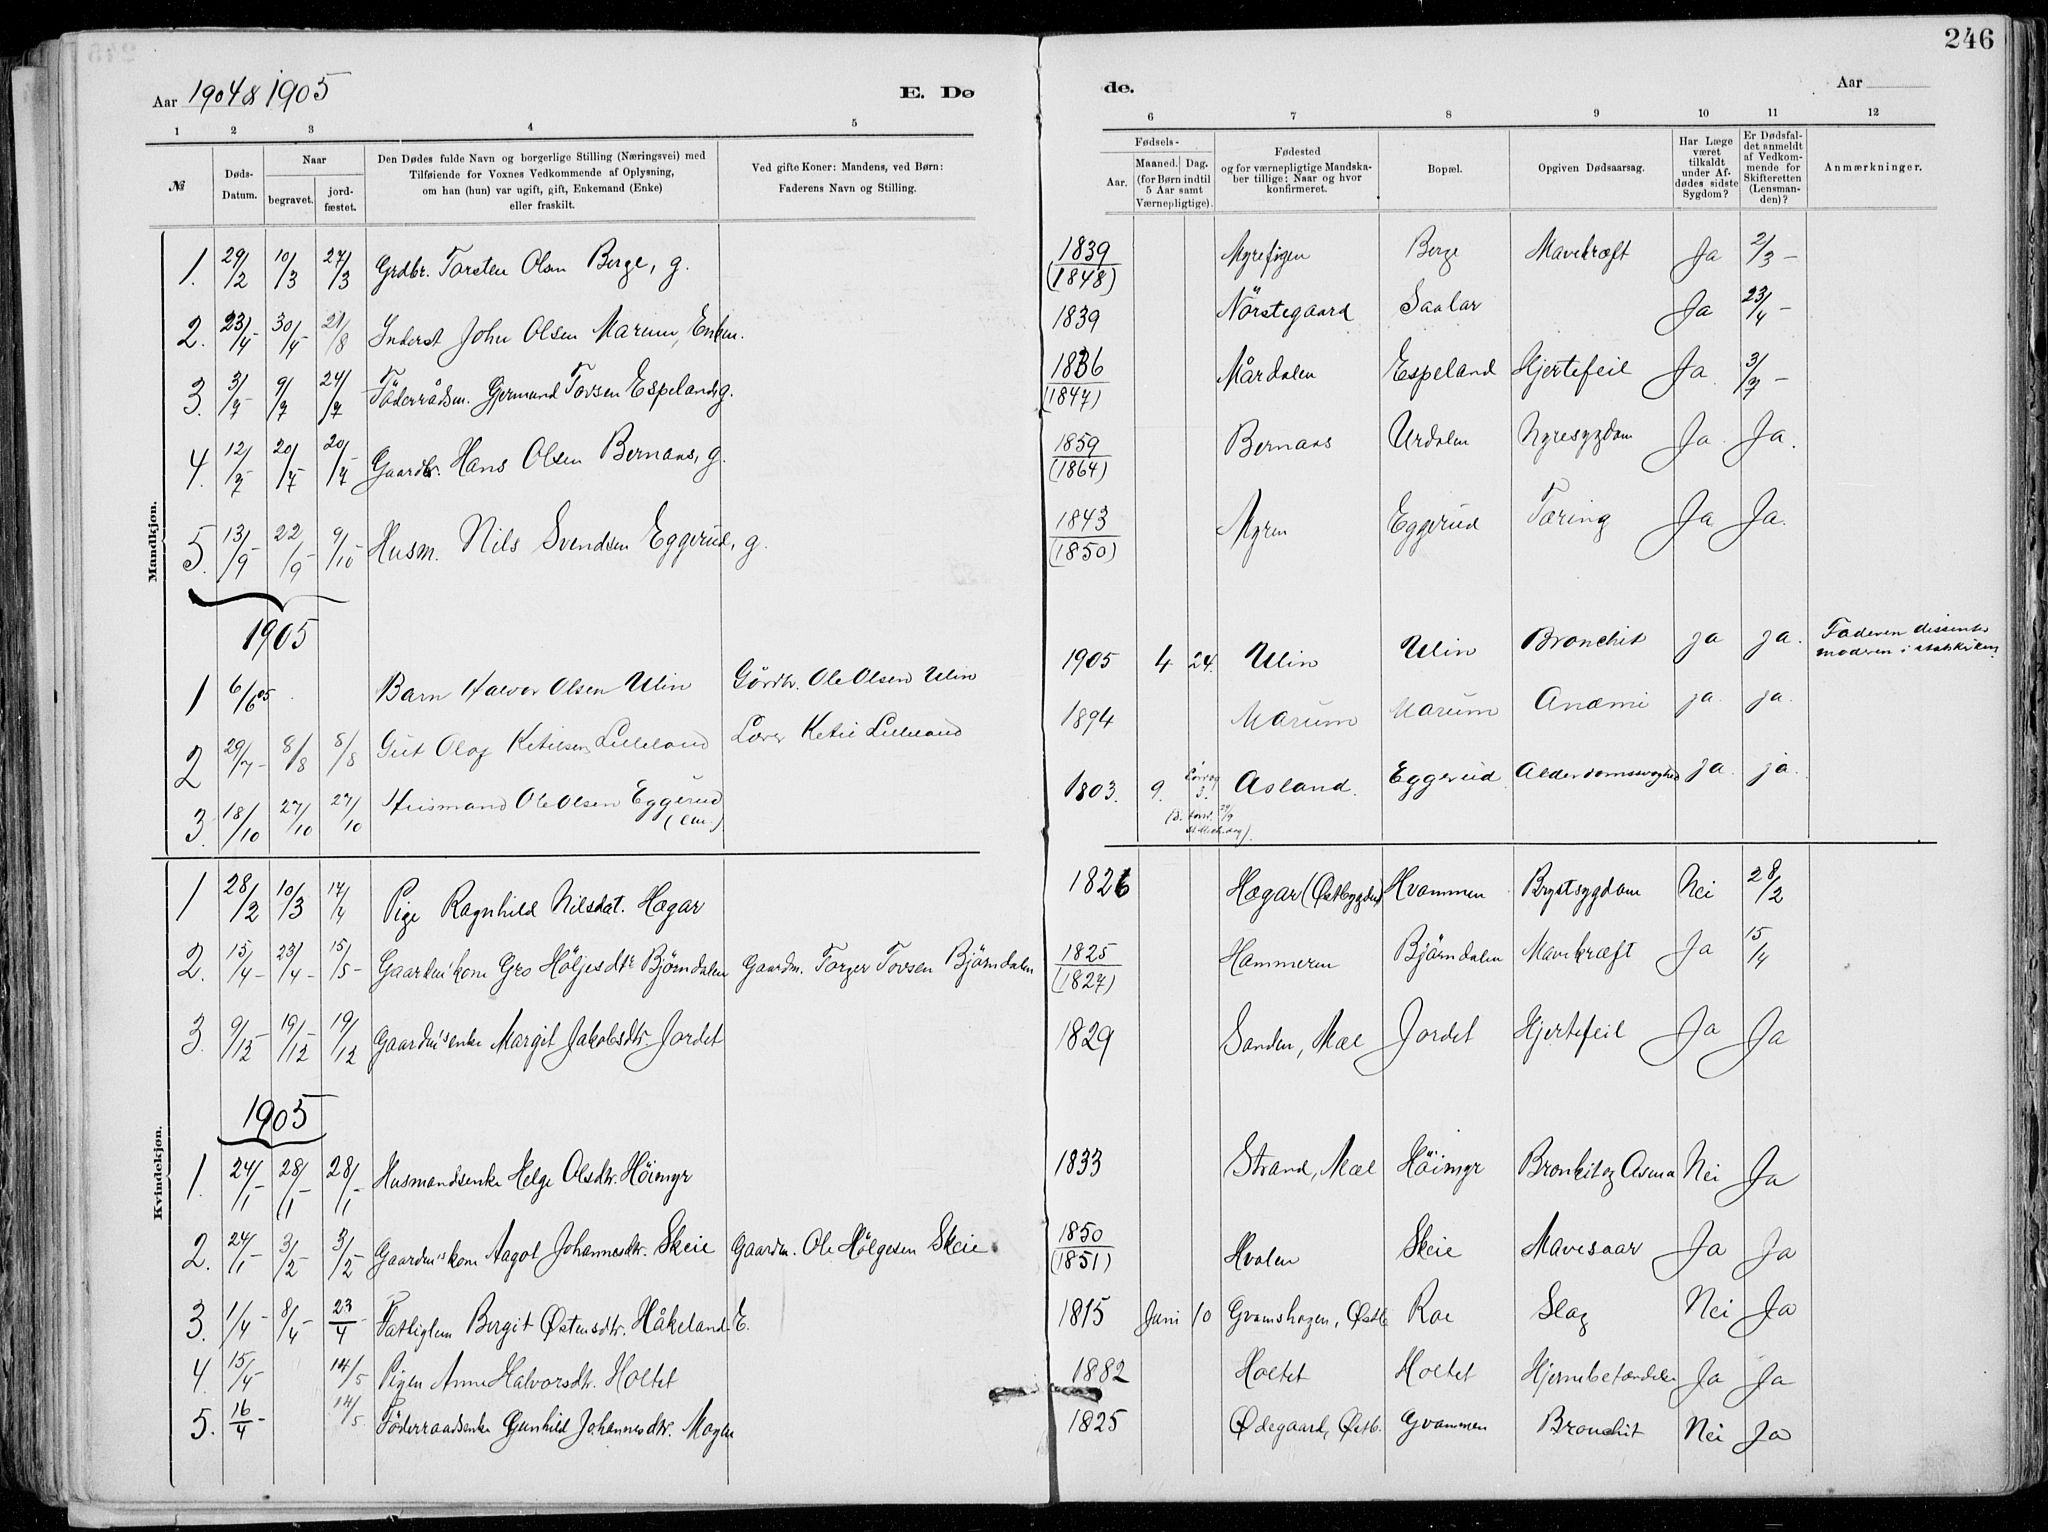 246
Aar 1904 & 1905 E. Dø
de. Aar
1 2 3 4 5
6 7 8 9 10 11 12
№
Døds-Datum.
Naar
begravet.
jord-fæstet.
Den Dødes fulde Navn og borgerlige Stilling (Næringsvei) med
Tilføiende for Voxnes Vedkommende af Oplysning,
om han (hun) var ugift, gift, Enkemand (Enke)
eller fraskilt.
Ved gifte Koner: Mandens, ved Børn:
Faderens Navn og Stilling.
Fødsels-
Aar.
Maaned. Dag.
(for Børn indtil
5 Aar samt
Værnepligtige).
Fødested
og for værnepligtige Mandska-
ber tillige: Naar og hvor
konfirmeret.
Bopæl.
Opgiven Dødsaarsag.
Har Læge
været
tilkaldt
under Af-
dødes sidste
Sygdom?
Er Dødsfal-
det anmeldt
af Vedkom-
mende for
Skifteretten
(Lensman-
den)?
Anmærkninger.
Mandkjøn.
1. 29/2 10/3 27/3 Grdbr. Torsten Olsen Berge, g. 1839 (1848) Myrefigen Berge Mavekræft Ja 2/3 -
2. 23/4 - 30/4 - 21/8 Inderst John Olsen Marum, Enkem. 1839 Nörstegaard Saalar Ja 23/4 -
3. 3/7 - 9/7 24/7 Föderrådsm. Gjermund Tovsen Espeland, g. 1836 (1847) Mårdalen Espeland Hjertefeil Ja. 3/7 -
4. 12/7 20/7 20/7 - Gaardbr. Hans Olsen Bernaas, g. 1859 (1864) Bernaas Urdalen Nyresygdom Ja. Ja.
5. 13/9 - 22/9 - 9/10 Husm. Nils Svendsen Eggerud, g. 1843 (1850) Myren Eggerud Tæring Ja Ja.
1905
1 6/6 05 Barn Halvor Olsen Ulin Gårdbr. Ole Olsen Ulin 1905 4 24. Ulin Ulin Bronchit ja ja. Faderen dissenter moderen i statskirken
2 29/7 - 8/8 8/8 Gut Olaf Ketilsen Lilleland Lærer Ketil Lilleland 1894 Marum Marum Anæmi ja. ja.
3. 18/10 27/10 27/10 Husmand Ole Olsen Eggerud (em.) 1803. 9. Åsland. Eggerud Alderdomssvaghed ja. ja.
Kvindekjøn.
1 28/2 10/3 17/4 Pige Ragnhild Nilsdat. Hægar 1826 Hægar (Østbygden) Hvammen Brystsygdom Nei 28/2
2. 15/4 - 23/4 - 15/5 - Gaardm's kone Gro Höljesdtr Björndalen Gaardm. Torger Tovsen Björndalen 1825 (1827) Hammeren Björndalen Mavekræft Ja 15/4
3. 9/12 - 19/12 - 19/12 Gaardm's enke Margit Jakobsdtr. Jordet 1829 Sanden, Mæl Jordet Hjertefeil Ja Ja
1905
1. 24/1 - 28/1 - 28/1 - Husmandsenke Helge Olsdtr. Höimyr 1833 Strand, Mæl Höimyr Bronkit og Asma Nei Ja
2. 24/1 - 3/2 - 3/2 - Gaardm's kone Aagot Johannesdtr. Skeie Gaardm. Ole Hölgesen Skeie 1850 (1851) Hvalen Skeie Mavesaar Ja Ja
3. 1/4 - 8/4 - 23/4 Fattiglem Bergit Østensdtr. Håkeland. E. 1815 Juni 10 Gvamshagen, Østb. Roe Slag Nei Ja
4. 15/4 14/5 Pigen Anne Halvorsdtr. Holtet 1882 Holtet Holtet Hjernebetændelse Ja Ja
5. 16/4 - 14/5 Föderraadsenke Gunhild Johannesdtr. Mogen 1825 Ødegaard, Østb. Gvammen Bronchit Nei Ja